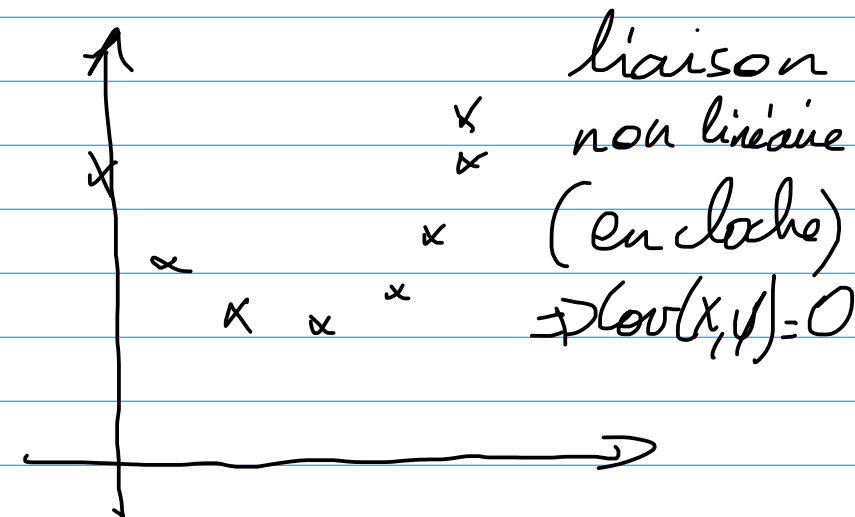 liaison
non linéaire
(en cloche)
=> Cov(X,Y)=0